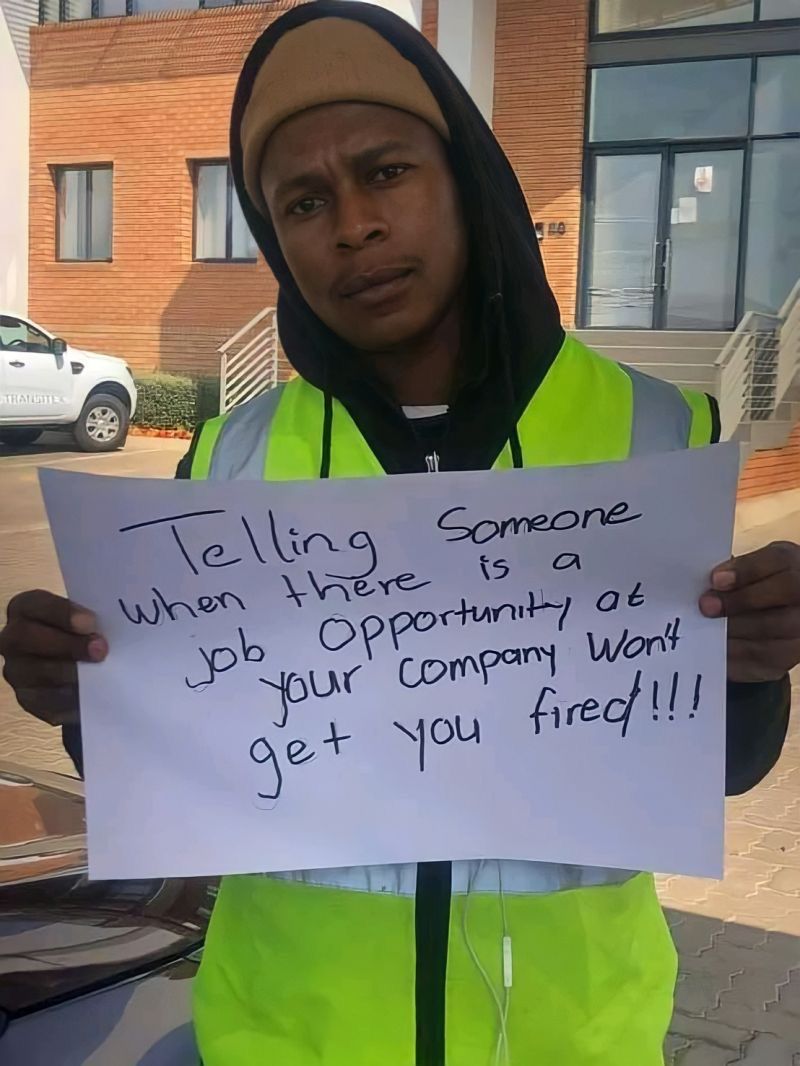 Telling Someone
when there is a
job opportunity at
your company Won't
get you fired!!!